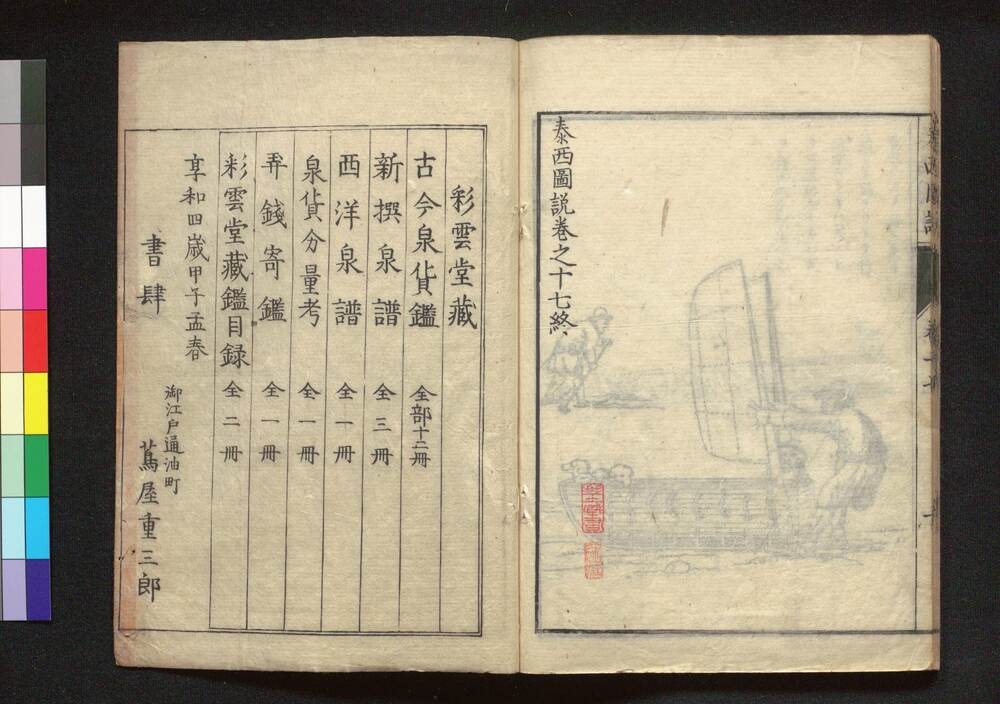 泰西圖説巻之十七終
彩雲堂藏
古今泉貨鑑 全部十二冊
新撰泉譜 全三冊
西洋泉譜 全一冊
泉貨分量考 全一冊
弄錢寄鑑 全一冊
彩雲堂藏鑑目録 全二冊
享和四歳甲子孟春
御江戸通油町
書肆 蔦屋重三郎